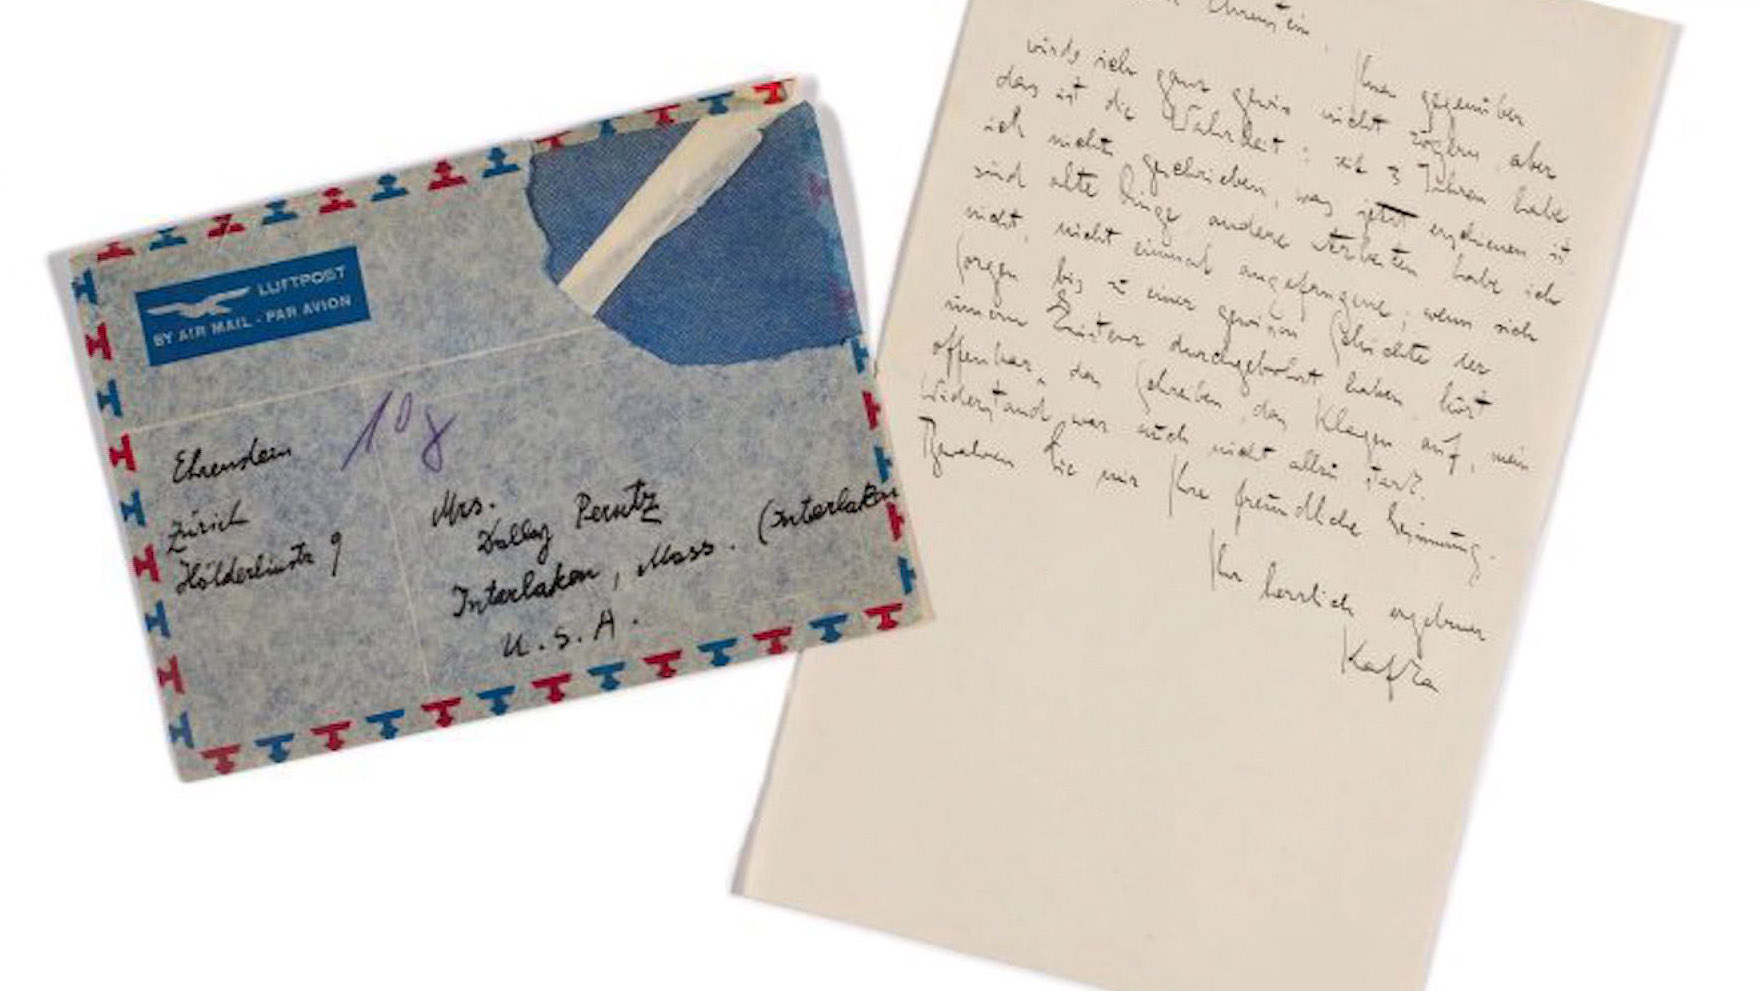 LUFTPOST
BY AIR MAIL - PAR AVION
10 g
Ehrenstein
Zürich
Hölderlinstr 9
Mrs.
Dolly Perutz
Interlaken, Mass. (Interlaken
U.S.A.
Ehrenstein,
Ihnen gegenüber
würde ich ganz gewiss nicht zögern aber
das ist die Wahrheit: seit 3 Jahren habe
ich nichts geschrieben, was jetzt erschienen ist
sind alte Dinge andere Arbeiten habe ich
nicht, nicht einmal angefangene, wenn sich
Sorgen bis zu einer gewissen Schichte der
inneren Existenz durchgebohrt haben, hört
offenbar das Schreiben und das Klagen auf, mein
Widerstand war auch nicht allzu stark.
Bewahren Sie mir Ihre freundliche Gesinnung.
Ihr herzlich ergebener
Kafka